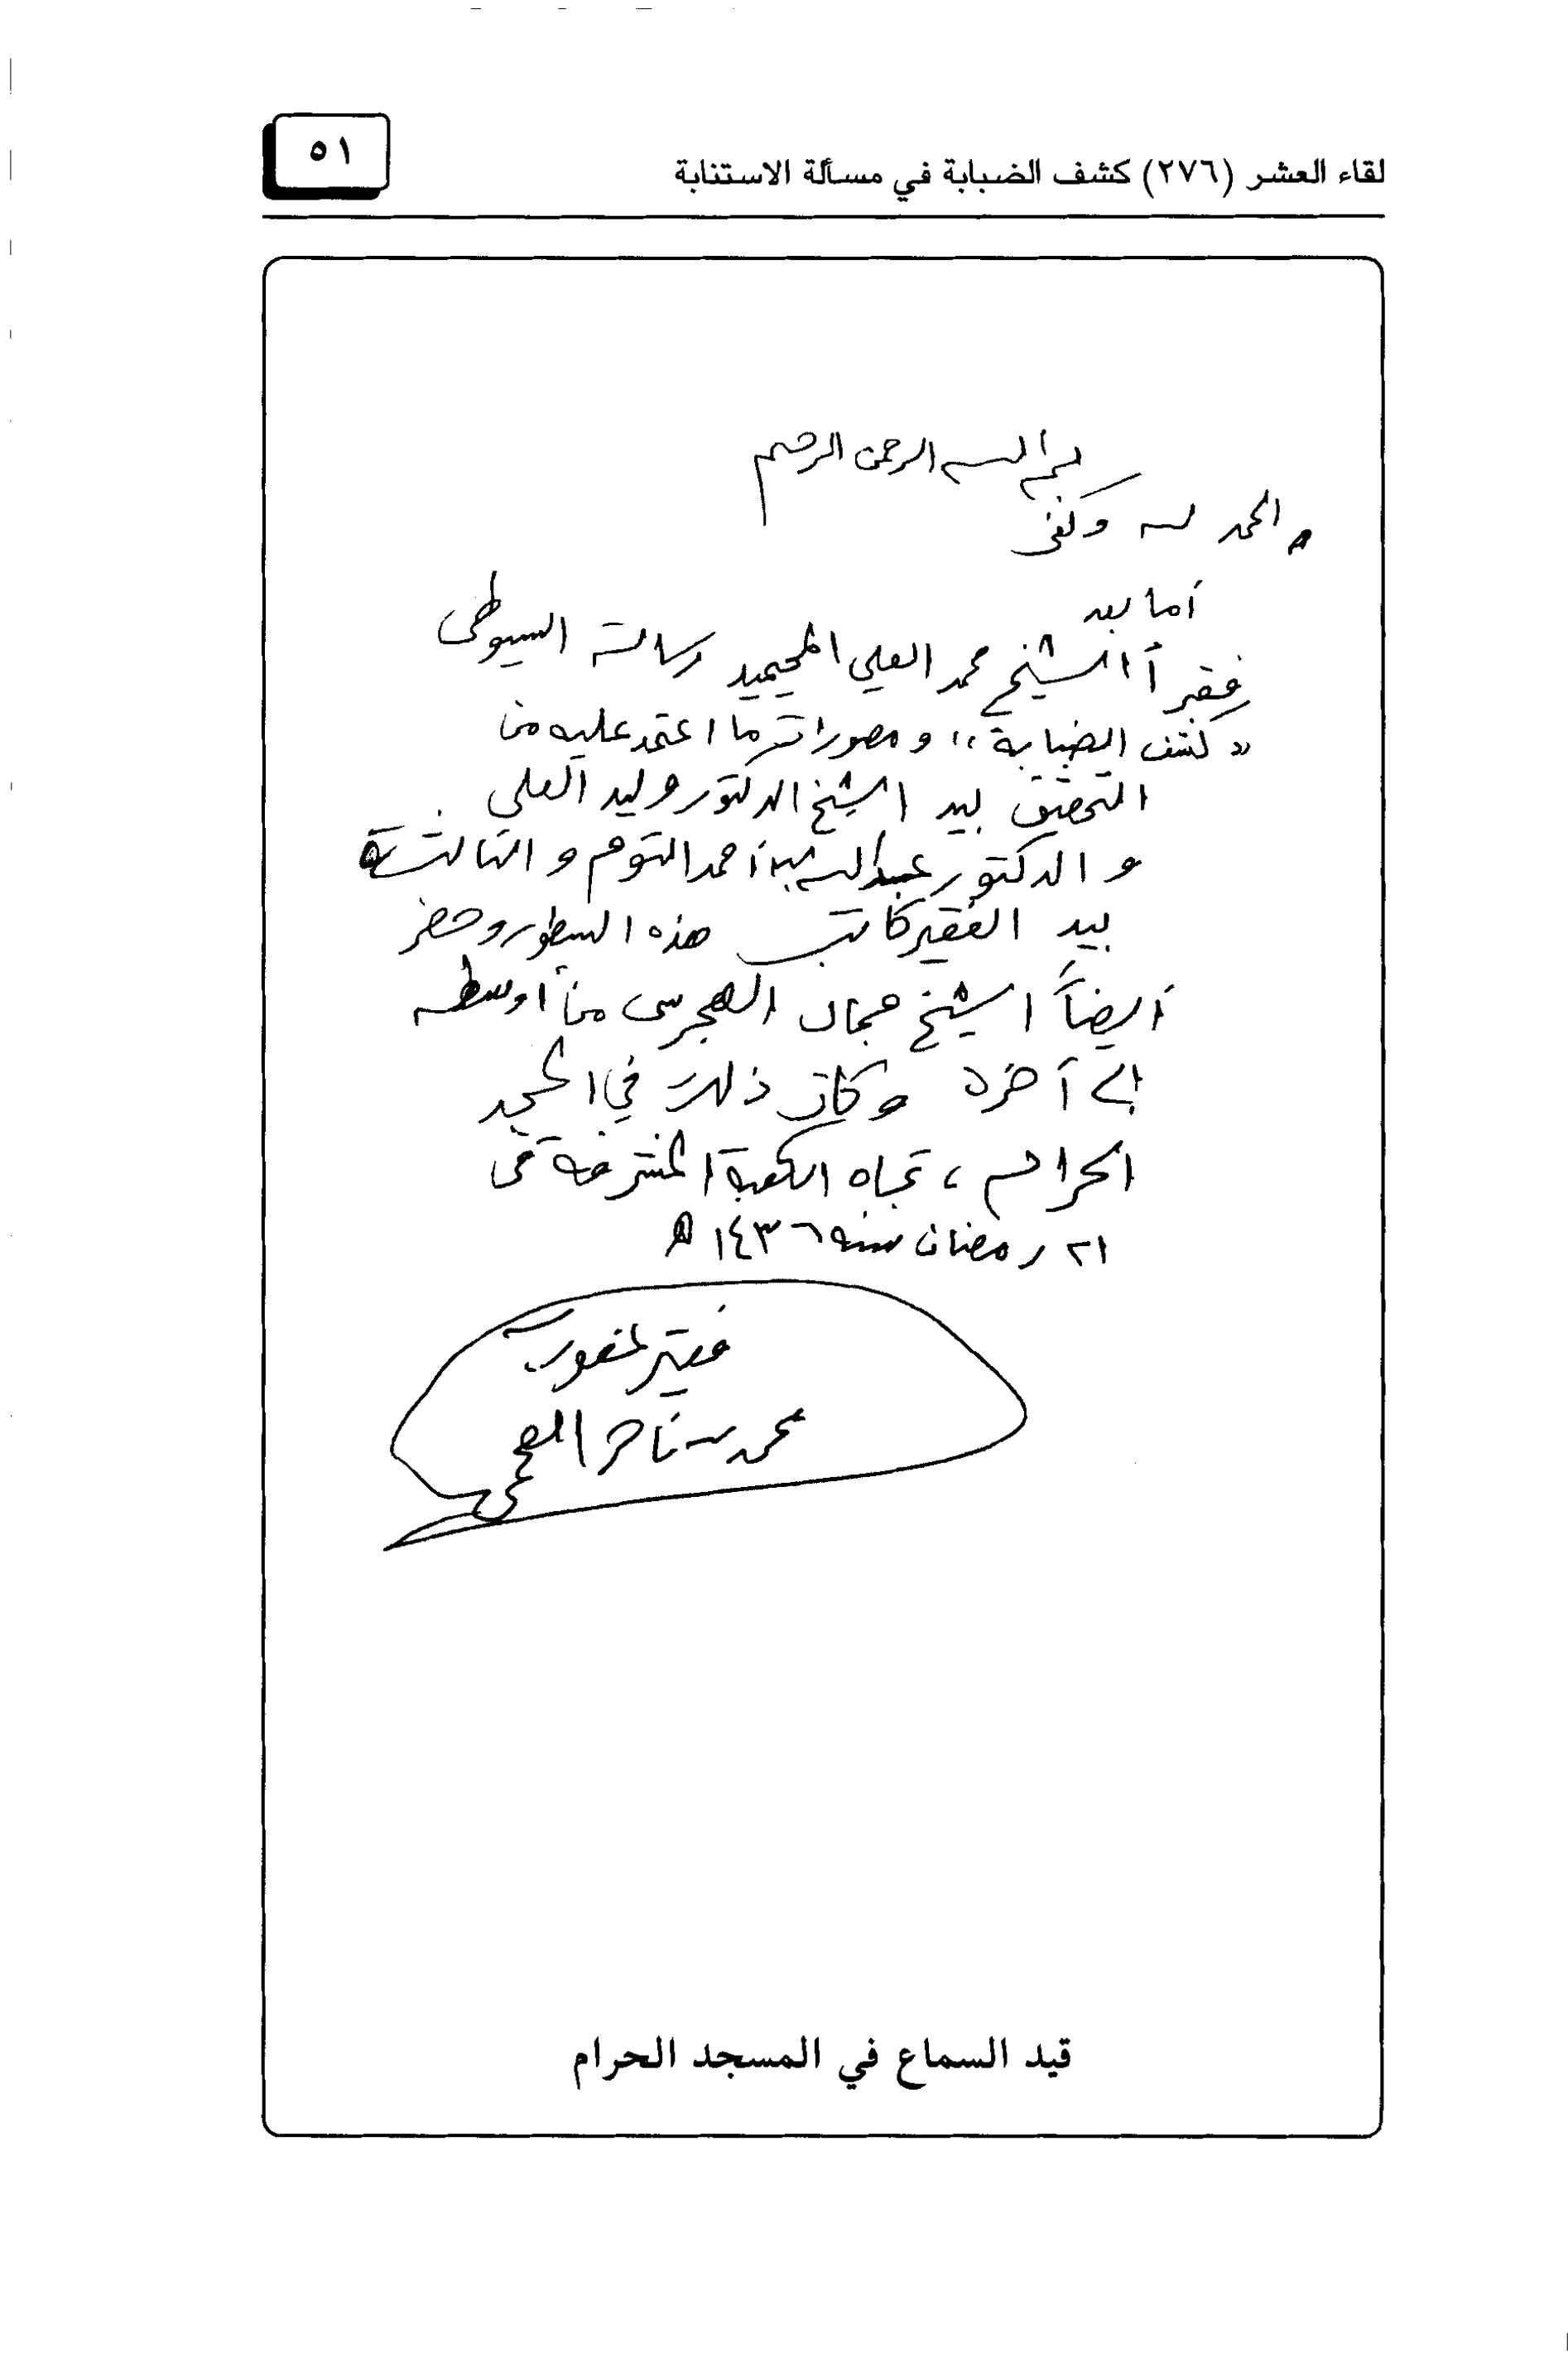 لقاء العشر (٢٧٦) كشف الضبابة في مسألة الاستنابة
٥١
بسم الله الرحمن الرحيم
الحمد لله وكفى
أما بعد
فقرأ الشيخ محمد العلي المحيميد رسالة السيوطي
«كشف الضبابة» ومصورات ما اعتمد عليه من
التحقيق بيد الشيخ الدكتور وليد العلي
والدكتور عبدالله بن أحمد التوم والثالثة
بيد الفقير كاتب هذه السطور وحضر
أيضاً الشيخ جمال الهجرسي من أوسطه
إلى آخره وكان ذلك في المسجد
الحرام، تجاه الكعبة المشرفة في
٢١ رمضان سنة ١٤٣٦ هـ
فقير عفو ربه
محمد بن ناصر العجمي
قيد السماع في المسجد الحرام